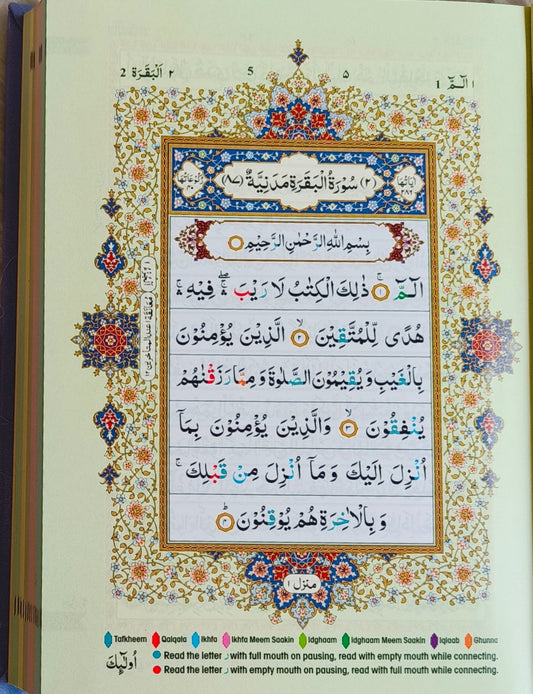 الٓمّٓ ١ ٥ 5 ٢ اَلْبَقَرَة 2
اٰيَاتُهَا ٢٨٦ (٢) سُوْرَةُ الْبَقَرَةِ مَدَنِيَّةٌ (٨٧) رُكُوْعَاتُهَا ٤٠
بِسْمِ اللّٰهِ الرَّحْمٰنِ الرَّحِيْمِ
الٓمّٓ ۚ ١ ذٰلِكَ الْكِتٰبُ لَا رَيْبَ ۛۖ فِيْهِ ۛۚ
هُدًى لِّلْمُتَّقِيْنَ ۙ ٢ الَّذِيْنَ يُؤْمِنُوْنَ
بِالْغَيْبِ وَيُقِيْمُوْنَ الصَّلٰوةَ وَمِمَّا رَزَقْنٰهُمْ
يُنْفِقُوْنَ ۙ ٣ وَالَّذِيْنَ يُؤْمِنُوْنَ بِمَآ
اُنْزِلَ اِلَيْكَ وَمَآ اُنْزِلَ مِنْ قَبْلِكَ ۚ
وَبِالْاٰخِرَةِ هُمْ يُوْقِنُوْنَ ؕ ٤
منزل ١
Tafkheem Qalqala Ikhfa Ikhfa Meem Saakin Idghaam Idghaam Meem Saakin Iqlaab Ghunna
Read the letter ر with full mouth on pausing, read with empty mouth while connecting.
Read the letter ر with empty mouth on pausing, read with full mouth while connecting.
اُولٰٓئِكَ